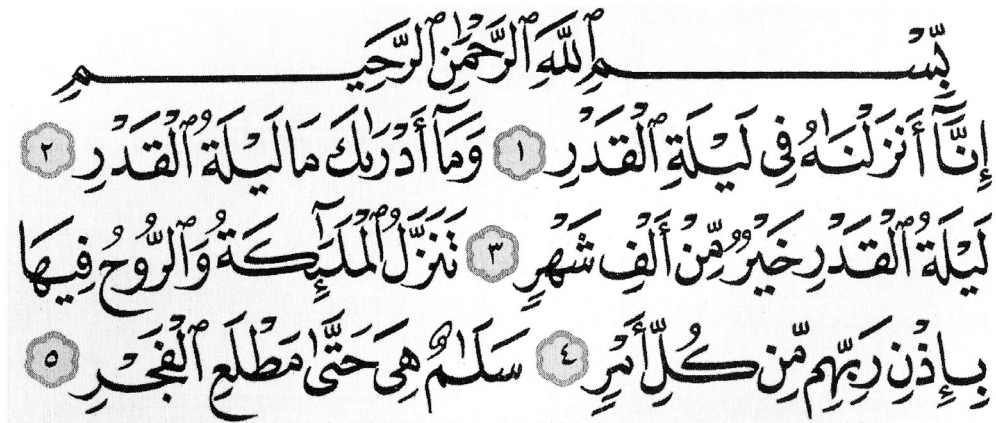 بِّسْمِ ٱللَّهِ ٱلرَّحْمَٰنِ ٱلرَّحِيمِ
إِنَّآ أَنزَلْنَٰهُ فِى لَيْلَةِ ٱلْقَدْرِ ١ وَمَآ أَدْرَىٰكَ مَا لَيْلَةُ ٱلْقَدْرِ ٢
لَيْلَةُ ٱلْقَدْرِ خَيْرٌ مِّنْ أَلْفِ شَهْرٍ ٣ تَنَزَّلُ ٱلْمَلَٰٓئِكَةُ وَٱلرُّوحُ فِيهَا
بِإِذْنِ رَبِّهِم مِّن كُلِّ أَمْرٍ ٤ سَلَٰمٌ هِىَ حَتَّىٰ مَطْلَعِ ٱلْفَجْرِ ٥